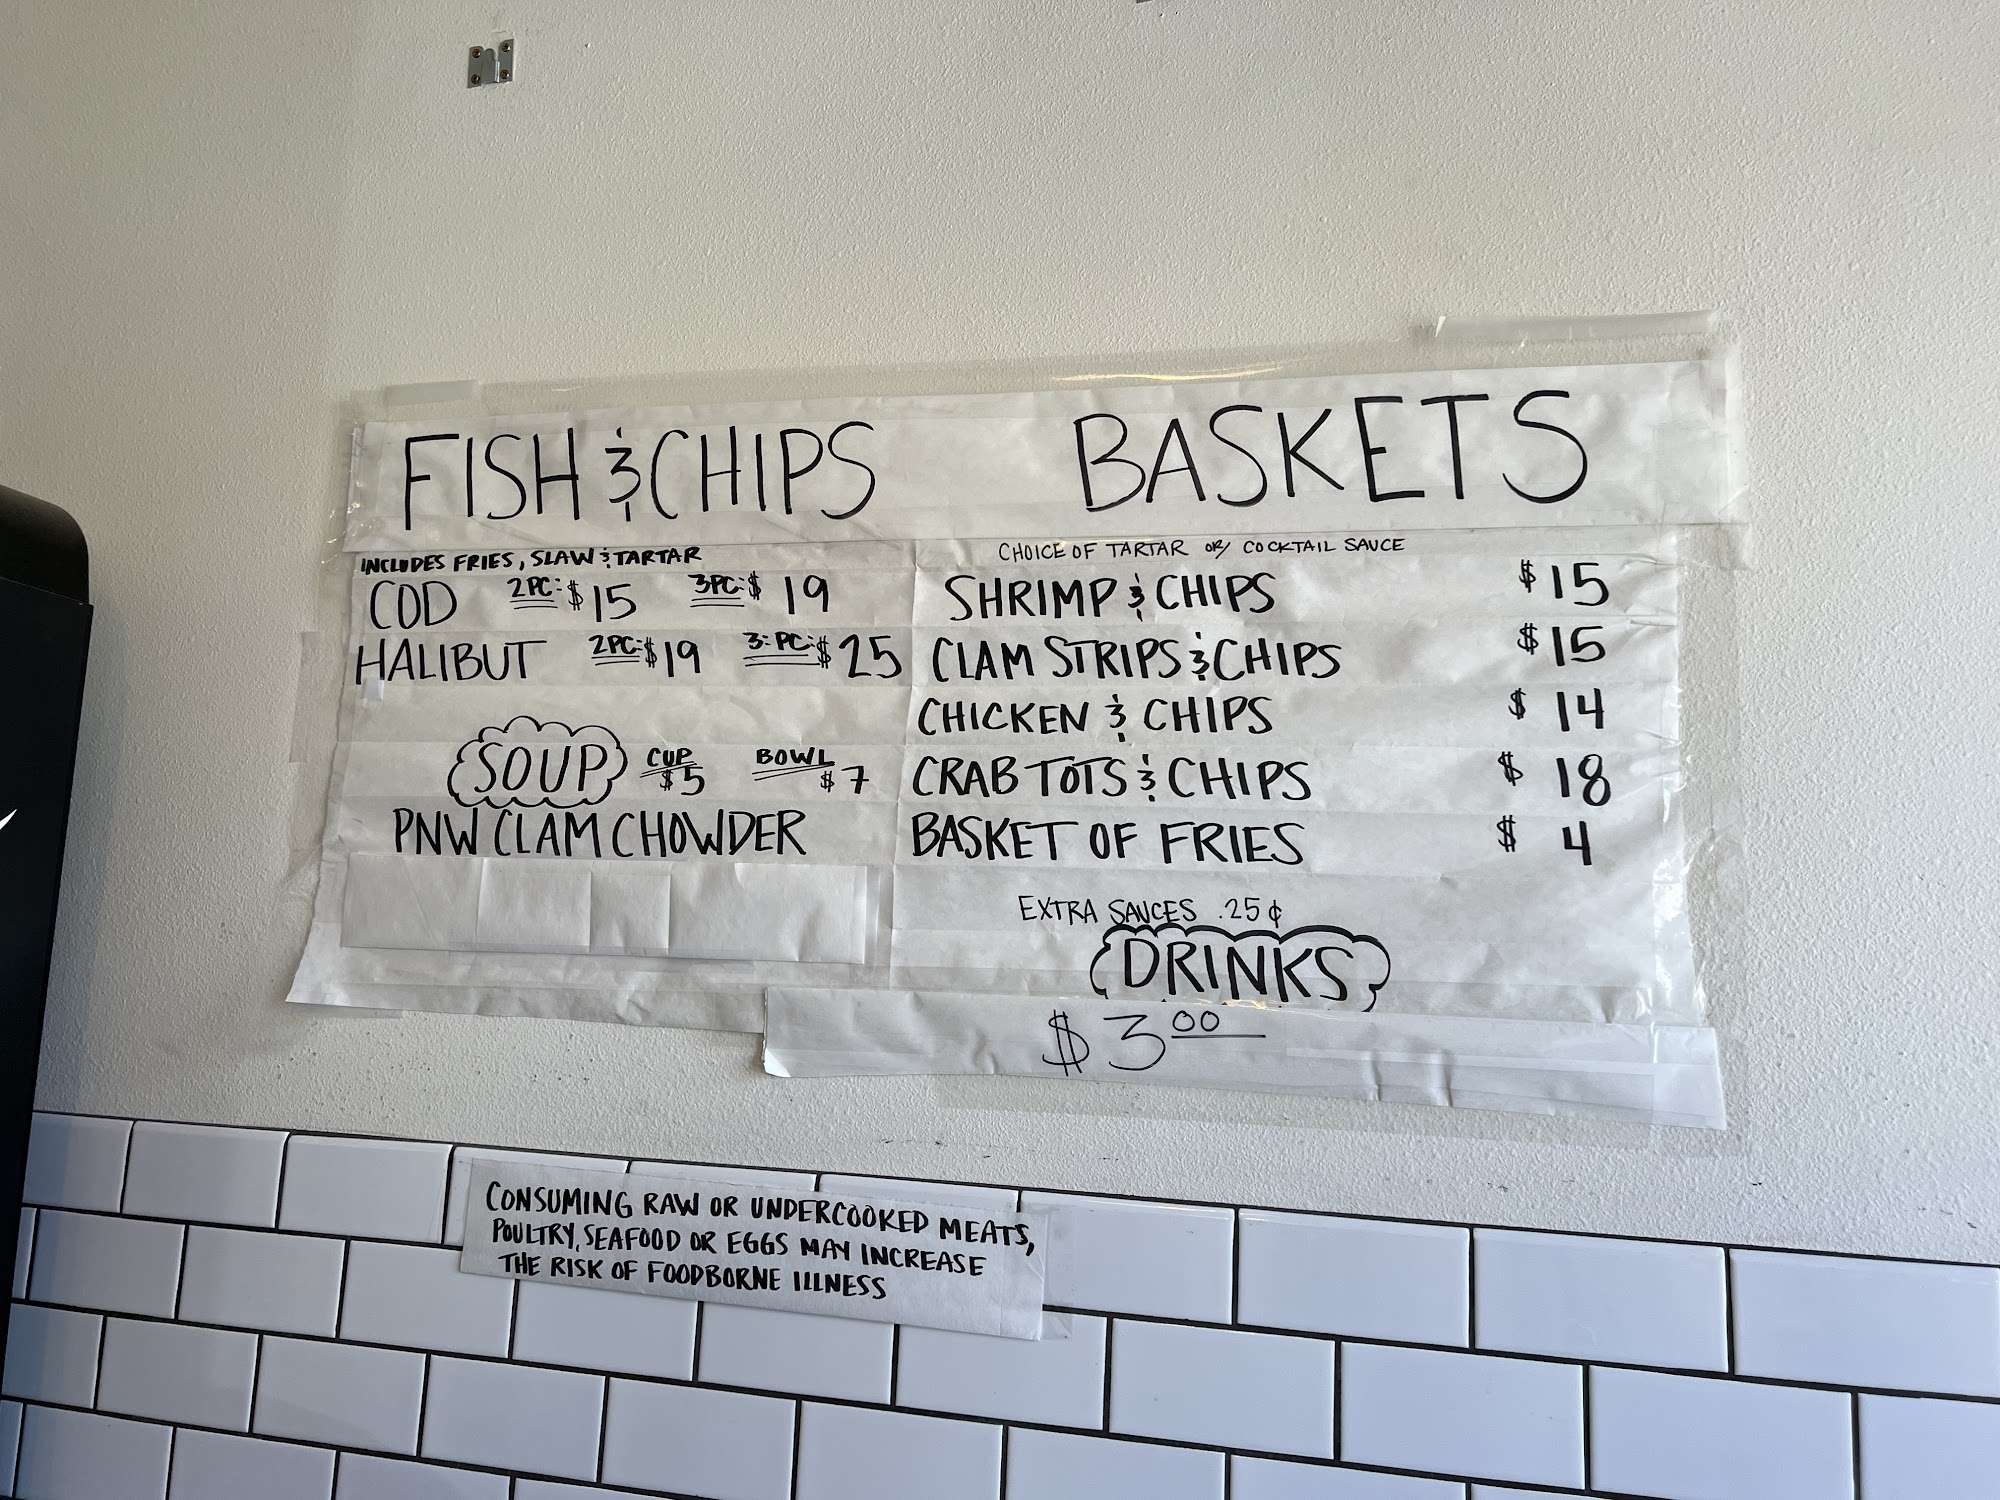 FISH & CHIPS
INCLUDES FRIES, SLAW & TARTAR
COD 2PC: $15 3PC: $19
HALIBUT 2PC: $19 3: PC: $25
SOUP CUP $5 BOWL $7
PNW CLAM CHOWDER
BASKETS
CHOICE OF TARTAR OR COCKTAIL SAUCE
SHRIMP & CHIPS $15
CLAM STRIPS & CHIPS $15
CHICKEN & CHIPS $14
CRAB TOTS & CHIPS $18
BASKET OF FRIES $4
EXTRA SAUCES .25¢
DRINKS
$3.00
CONSUMING RAW OR UNDERCOOKED MEATS,
POULTRY, SEAFOOD OR EGGS MAY INCREASE
THE RISK OF FOODBORNE ILLNESS